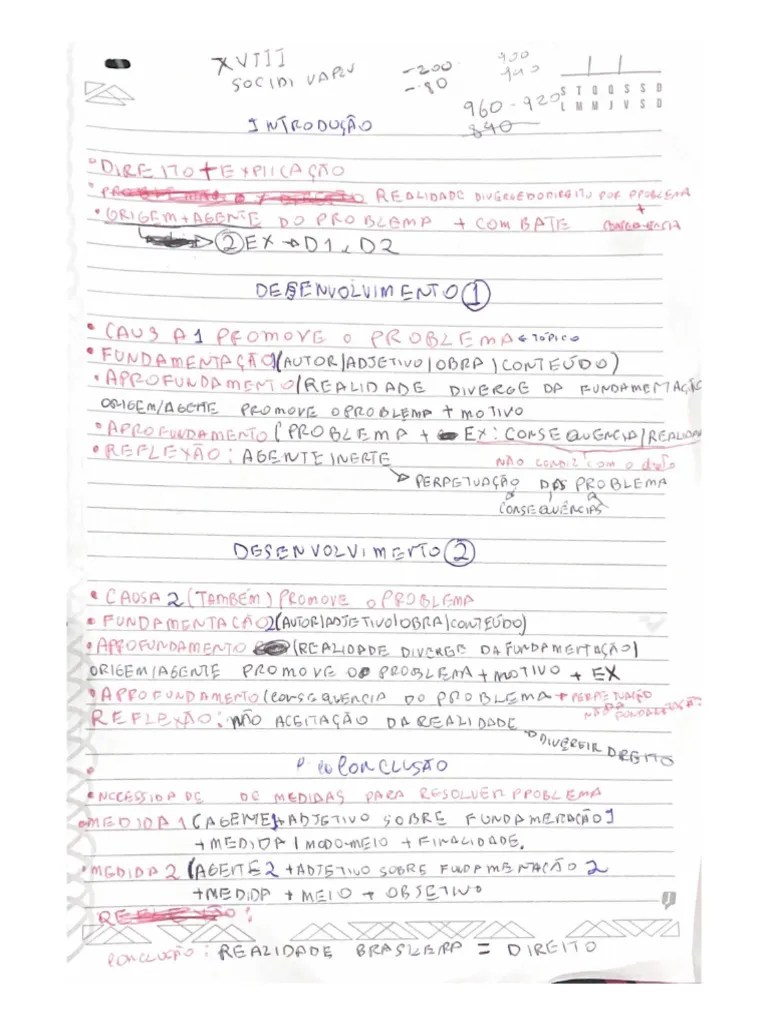 XVIII
-200
-80
900
960-920
840
S T Q Q S S D
L M M J V S D
INTRODUÇÃO
• DIREITO + EXPLICAÇÃO
• REALIDADE DIVERGE DO DIREITO POR PROBLEMA
+
• ORIGEM + AGENTE DO PROBLEMA + COMBATE CONSEQUÊNCIA
→ 2 EX → D1, D2
DESENVOLVIMENTO 1
• CAUSA 1 PROMOVE O PROBLEMA ← TÓPICO
• FUNDAMENTAÇÃO 1 (AUTOR/ADJETIVO/OBRA/CONTEÚDO)
• APROFUNDAMENTO/REALIDADE DIVERGE DA FUNDAMENTAÇÃO
ORIGEM/AGENTE PROMOVE O PROBLEMA + MOTIVO
• APROFUNDAMENTO (PROBLEMA + EX: CONSEQUÊNCIA/REALIDA
NÃO CONDIZ COM O direito
• REFLEXÃO: AGENTE INERTE
→ PERPETUAÇÃO DAS PROBLEMA
CONSEQUÊNCIAS
DESENVOLVIMENTO 2
• CAUSA 2 (TAMBÉM) PROMOVE O PROBLEMA
• FUNDAMENTACÃO 2 (AUTOR/ADJETIVO/OBRA/CONTEÚDO)
• APROFUNDAMENTO (REALIDADE DIVERGE DA FUNDAMENTAÇÃO)
ORIGEM/AGENTE PROMOVE O PROBLEMA + MOTIVO + EX
• APROFUNDAMENTO (CONSEQUENCIA DO PROBLEMA + PERPETUAÇÃO
REFLEXÃO: NÃO ACEITAÇÃO DA REALIDADE
→ DIVERGIR DIREITO
CONCLUSÃO
• NECESSIDADE DE MEDIDAS PARA RESOLVER PROBLEMA
• MEDIDA 1 (AGENTE 1 + ADJETIVO SOBRE FUNDAMERAÇÃO 1
+ MEDIDA / MODO-MEIO + FINALIDADE.
• MEDIDA 2 (AGENTE 2 + ADJETIVO SOBRE FUNDAMENTACÃO 2
+ MEDIDA + MEIO + OBJETIVO
REFLEXÃO:
CONCLUSÃO: REALIDADE BRASILEIRA = DIREITO